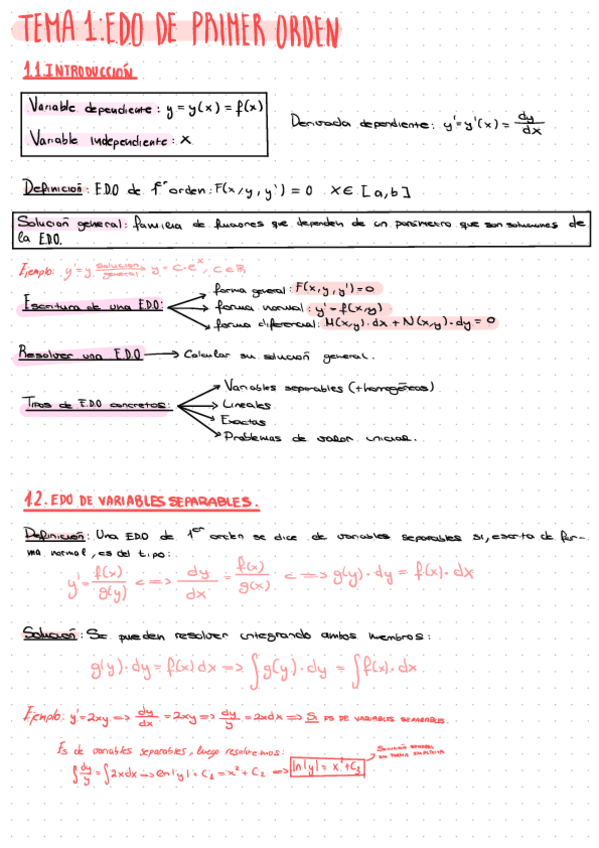 TEMA 1: E.D.O DE PRIMER ORDEN
1.1. INTRODUCCIÓN
Variable dependiente: y = y(x) = f(x)
Variable independiente: x
Derivada dependiente: y' = y'(x) = dy/dx
Definición: E.D.O de 1er orden: F(x, y, y') = 0 x ∈ [a, b]
Solución general: familia de funciones que dependen de un parámetro que son soluciones de
la E.D.O.
Ejemplo: y' = y solución general y = C·e^x, C ∈ ℝ
Escritura de una E.D.O:
forma general: F(x, y, y') = 0
forma normal: y' = f(x, y)
forma diferencial: M(x,y)·dx + N(x,y)·dy = 0
Resolver una E.D.O → Calcular su solución general.
Tipos de E.D.O concretos:
Variables separables (+homogéneas)
Lineales
Exactas
Problemas de valor inicial.
1.2. EDO DE VARIABLES SEPARABLES.
Definición: Una EDO de 1er orden se dice de variables separables si, escrita de for-
ma normal, es del tipo:
y' = f(x)/g(y) <=> dy/dx = f(x)/g(x) <=> g(y)·dy = f(x)·dx
Solución: Se pueden resolver integrando ambos miembros:
g(y)·dy = f(x)dx => ∫g(y)·dy = ∫f(x)·dx
Ejemplo: y' = 2xy => dy/dx = 2xy => dy/y = 2xdx => Sí ES DE VARIABLES SEPARABLES.
Es de variables separables, luego resolvemos:
∫dy/y = ∫2xdx => ln|y| + C₁ = x² + C₂ => ln|y| = x² + C₃
SOLUCIÓN GENERAL
EN FORMA IMPLÍCITA